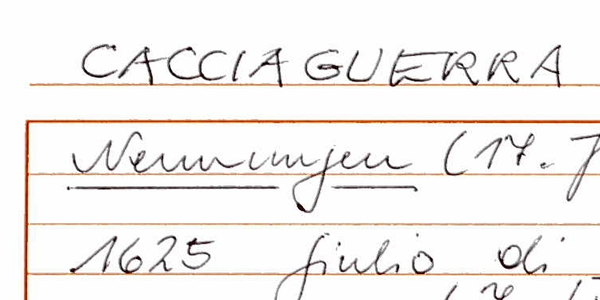 CACCIAGUERRA
Nennungen (17. J
1625 giulio di